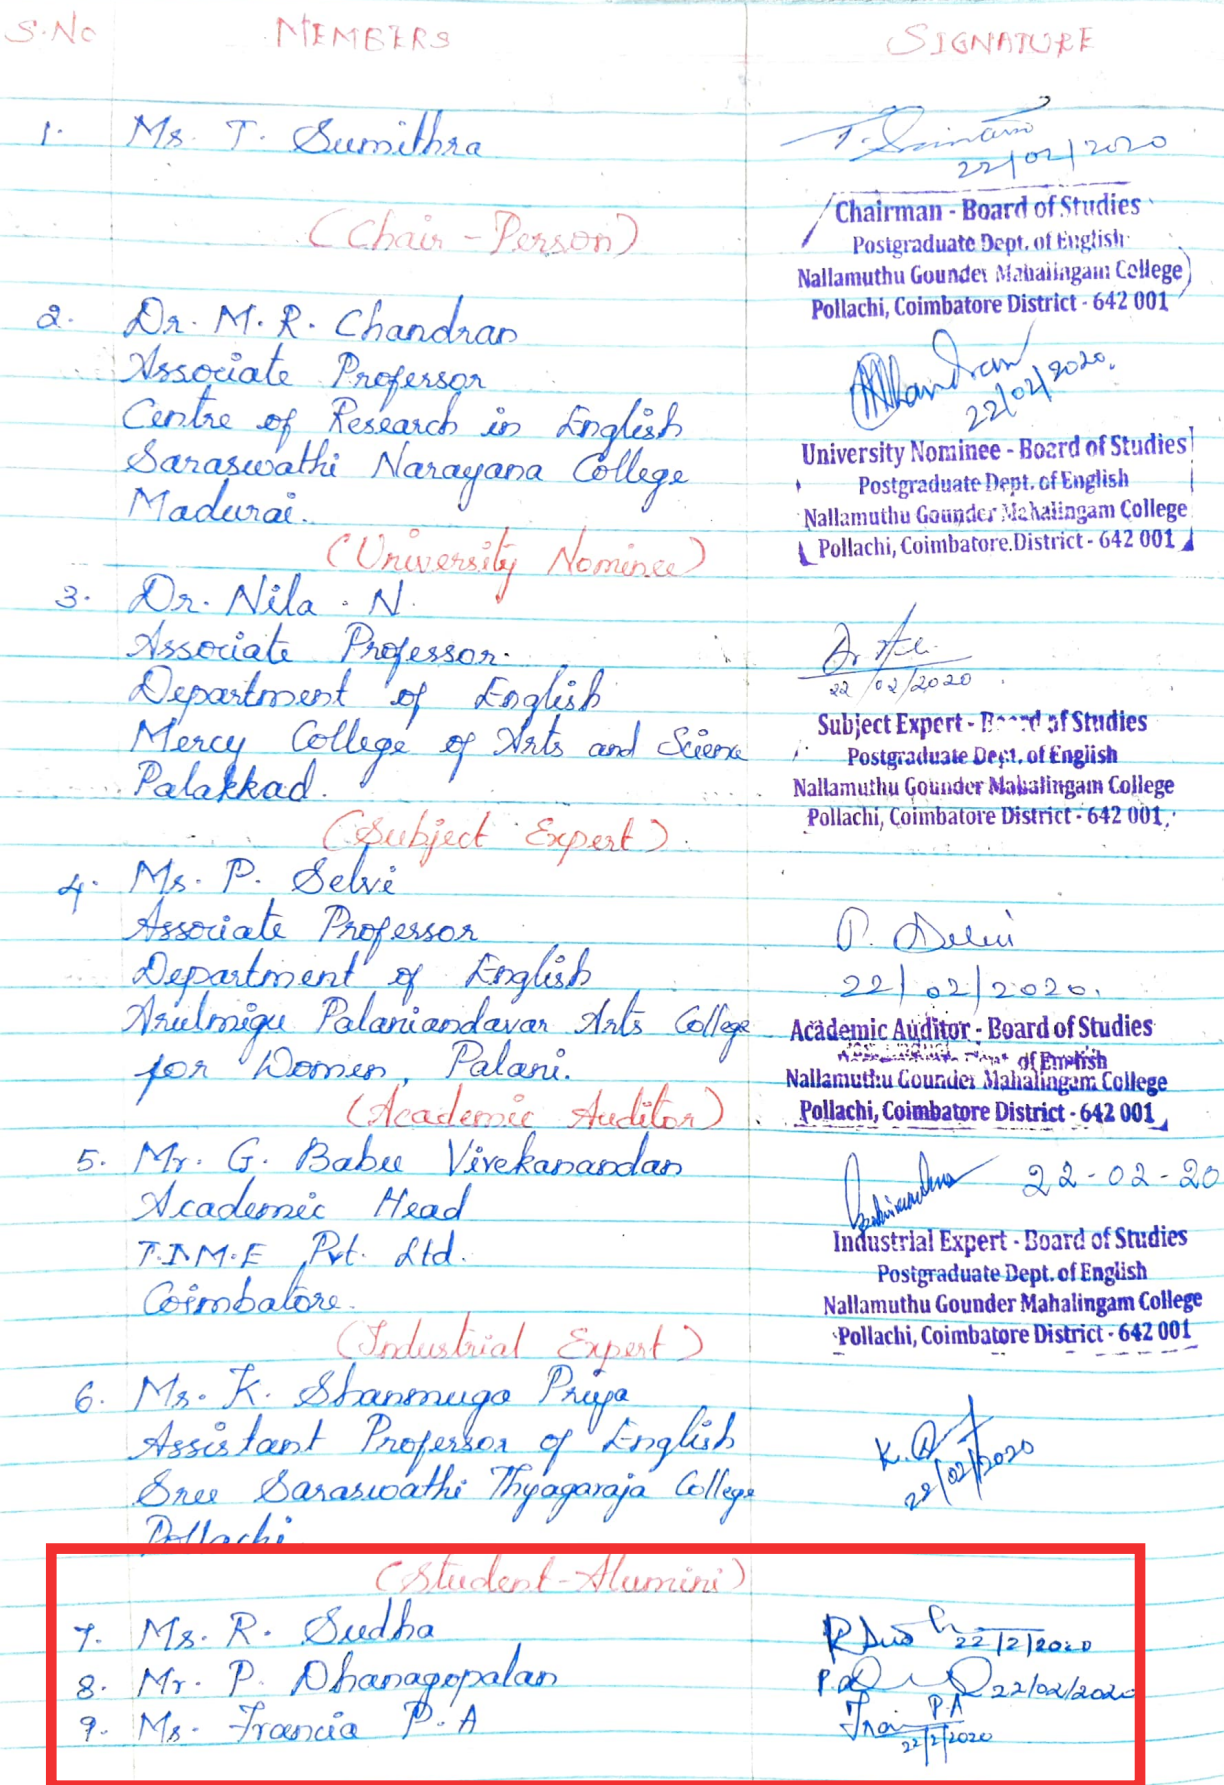 S.No MEMBERS SIGNATURE
1. Ms. T. Sumithra
22/02/2020
(Chair-Person)
Chairman - Board of Studies
Postgraduate Dept. of English
Nallamuthu Gounder Mahalingam College
Pollachi, Coimbatore District - 642 001
2. Dr. M. R. Chandran
Associate Professor
Centre of Research in English
Saraswathi Narayana College
Madurai.
(University Nominee)
22/02/2020.
University Nominee - Board of Studies
Postgraduate Dept. of English
Nallamuthu Gounder Mahalingam College
Pollachi, Coimbatore District - 642 001
3. Dr. Nila . N.
Associate Professor.
Department of English
Mercy College of Arts and Science
Palakkad.
(Subject Expert)
22/02/2020
Subject Expert - Board of Studies
Postgraduate Dept. of English
Nallamuthu Gounder Mahalingam College
Pollachi, Coimbatore District - 642 001.
4. Ms. P. Selvi
Associate Professor
Department of English
Arulmigu Palaniandavar Arts College
for Women, Palani.
(Academic Auditor)
P. Selvi
22/02/2020.
Academic Auditor - Board of Studies
Dept. of English
Nallamuthu Gounder Mahalingam College
Pollachi, Coimbatore District - 642 001
5. Mr. G. Babu Vivekanandan
Academic Head
T.I.M.E Pvt. Ltd.
Coimbatore.
(Industrial Expert)
22-02-20
Industrial Expert - Board of Studies
Postgraduate Dept. of English
Nallamuthu Gounder Mahalingam College
Pollachi, Coimbatore District - 642 001
6. Ms. K. Shanmuga Priya
Assistant Professor of English
Sree Saraswathi Thyagaraja College
Pollachi
22/02/2020
(Student-Alumini)
7. Ms. R. Sudha 22/2/2020
8. Mr. P. Dhanagopalan 22/02/2020
9. Ms. Francia P.A P.A
22/2/2020